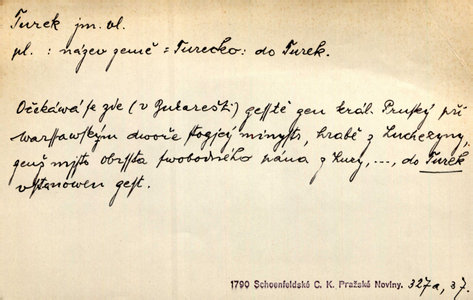 Turek jm. vl.
pl. : název země = Turecko: do Turek.
Očekáwá se zde (v Bukarešti) gesstě gen král. Pruský při
warssawským dwoře stogjcý minystr, hrabě z Luchezyny,
genž mjsto obrssta swobodného pána z Kucy, ..., do Turek
vstanowen gest.
1790 Schoenfeldské C. K. Pražské Noviny. 327a, 37.